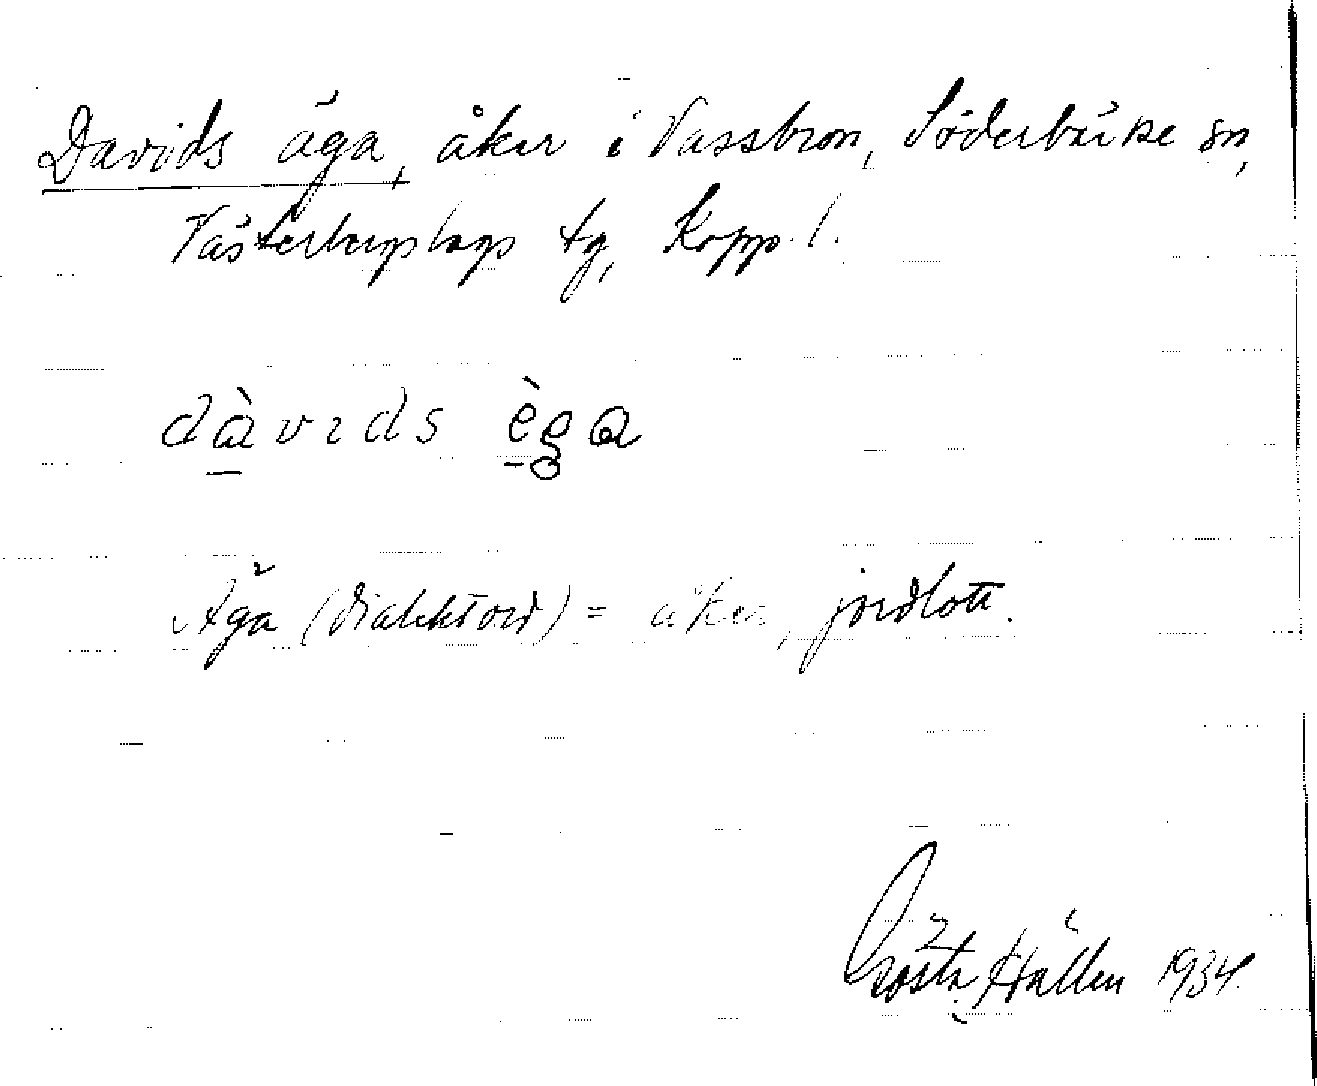 Davids äga, åker i Vassbron, Söderbärke sn,
Västerbergslags tg, Kopp. l.
dàvɩds èga
Äga (dialektord) = åker, jordlott.
Gösta Hällen 1934.